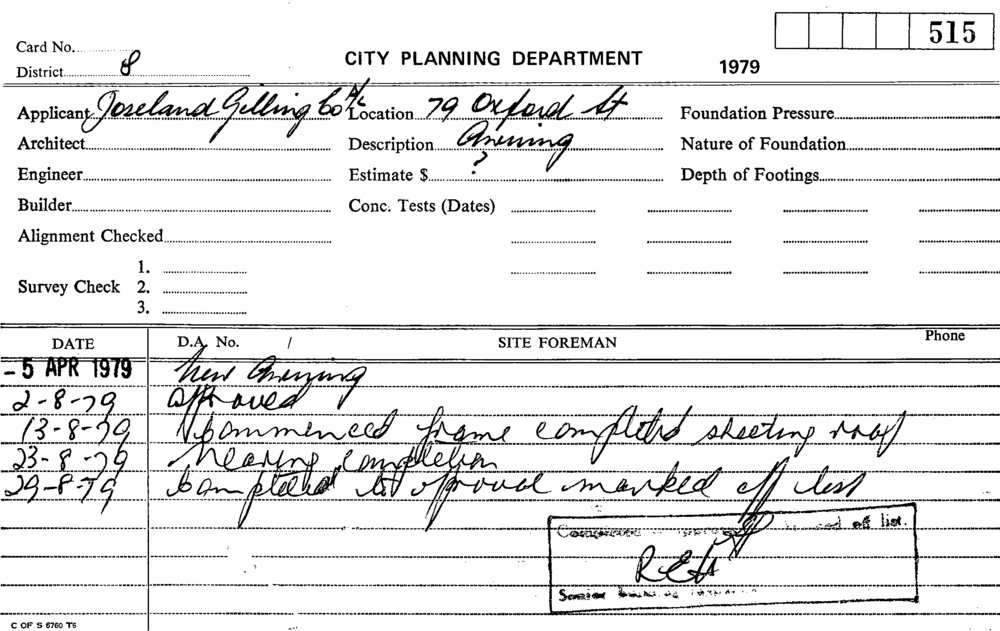 515
Card No.
CITY PLANNING DEPARTMENT 1979
District 8
Applicant Joseland Gilling Co P/L Location 79 Oxford St Foundation Pressure
Architect Description Awning Nature of Foundation
Engineer Estimate $ ? Depth of Footings
Builder Conc. Tests (Dates)
Alignment Checked
1.
Survey Check 2.
3.
DATE D.A. No. / SITE FOREMAN Phone
- 5 APR 1979 New Awning
2-8-79 approved
13-8-79 Commenced frame completed sheeting roof
23-8-79 nearing completion
29-8-79 Completed to approval marked off list
Completed off list.
REH
Senior
C OF S 6760 T6